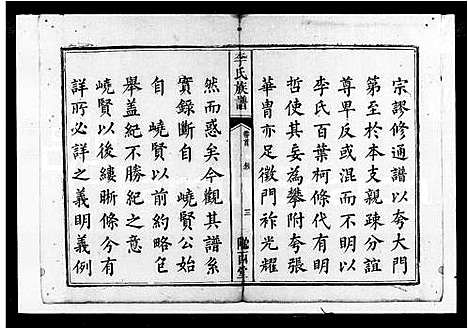 宗謬修通譜以夸大門
第至於本支親疎分誼
尊卑反或混而不明我
李氏百葉柯條代有明
哲使其妄為攀附夸張
華冑亦足徵門祚光耀
李氏族譜
卷首
三
然而惑矣今觀其譜系
實錄斷自 嶢賢公始
自 嶢賢以前約略包
舉盖紀不勝紀之意
嶢賢以後縷晰條分有
詳所必詳之義明義例